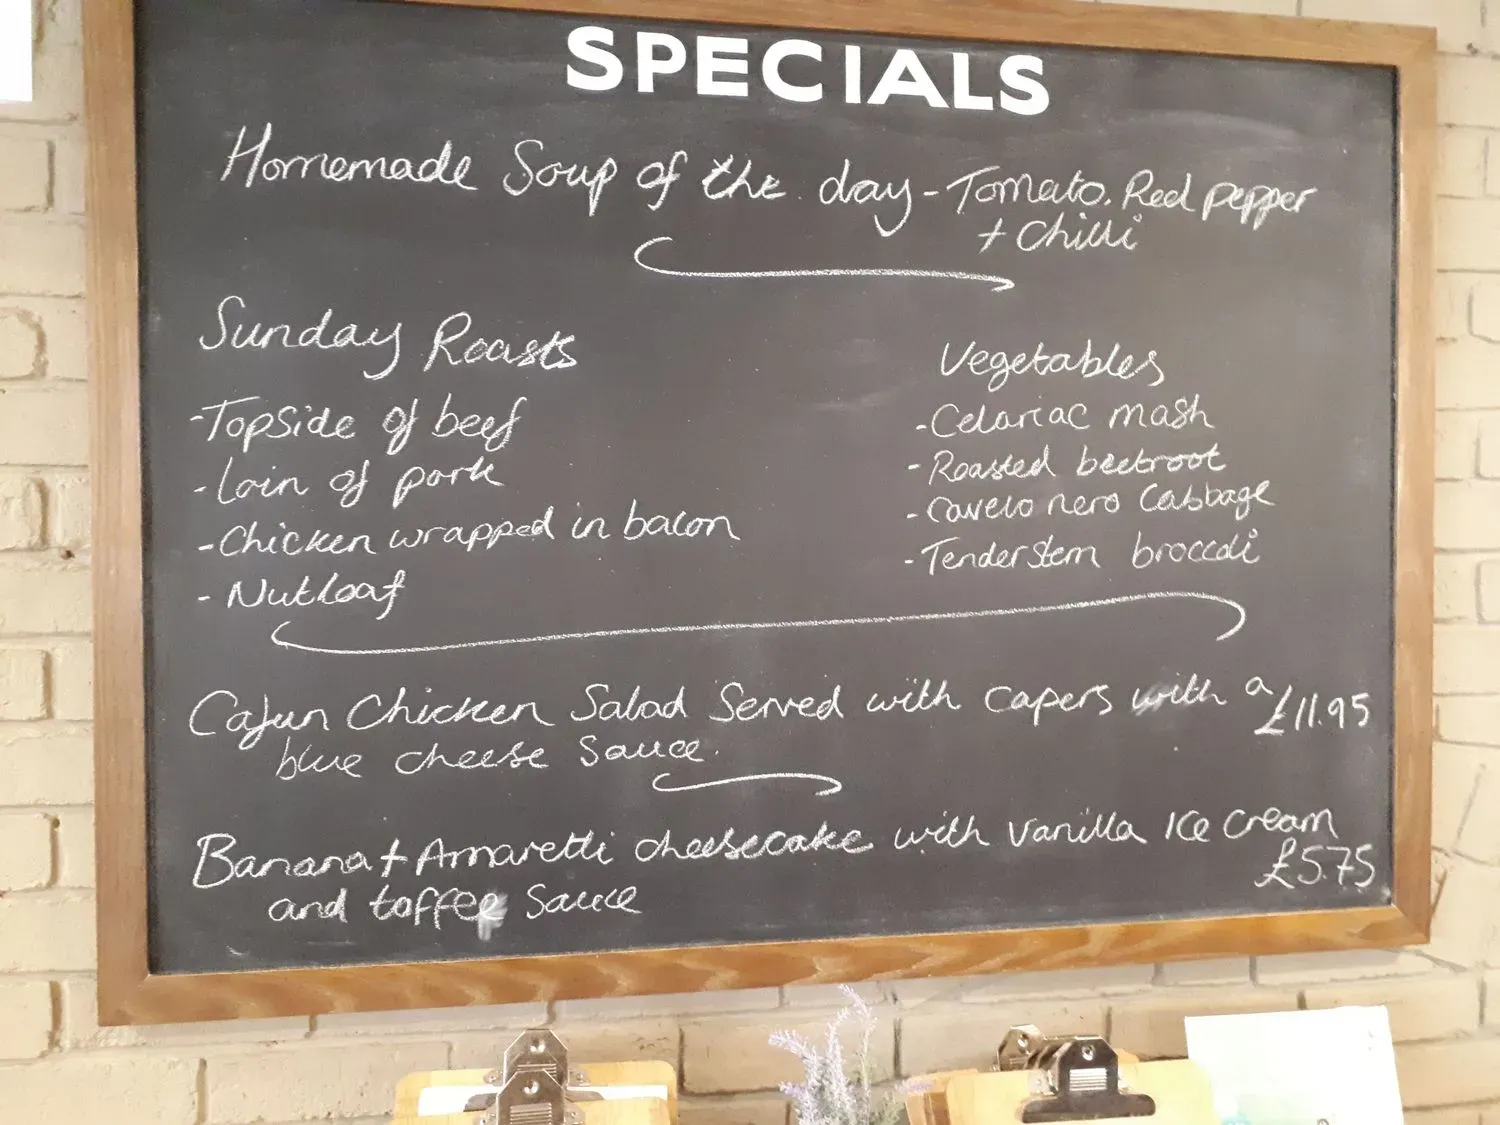 SPECIALS
Homemade Soup of the day - Tomato. Red pepper
+ Chilli
Sunday Roasts
- Topside of beef
- Loin of pork
- Chicken wrapped in bacon
- Nutloaf
Vegetables
- Celariac mash
- Roasted beetroot
- Cavelo nero Cabbage
- Tenderstem broccoli
Cajun Chicken Salad Served with capers with a
£11.95
blue cheese Sauce.
Banana + Amaretti cheesecake with vanilla Ice cream
£5.75
and toffee Sauce